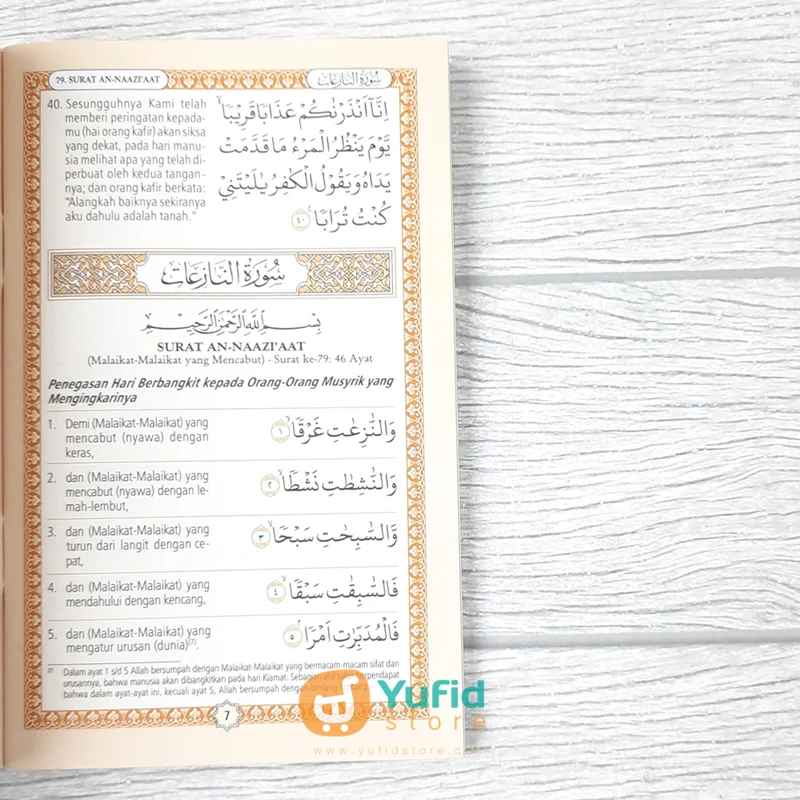 79. SURAT AN-NAAZI'AAT
سُورَةُ النَّازِعَات
40. Sesungguhnya Kami telah
memberi peringatan kepada-
mu (hai orang kafir) akan siksa
yang dekat, pada hari manu-
sia melihat apa yang telah di-
perbuat oleh kedua tangan-
nya; dan orang kafir berkata:
"Alangkah baiknya sekiranya
aku dahulu adalah tanah."
اِنَّآ اَنْذَرْنٰكُمْ عَذَابًا قَرِيْبًا ۙ
يَّوْمَ يَنْظُرُ الْمَرْءُ مَا قَدَّمَتْ
يَدَاهُ وَيَقُوْلُ الْكٰفِرُ يٰلَيْتَنِيْ
كُنْتُ تُرَابًا ࣖ ٤٠
سُورَةُ النَّازِعَات
بِسْمِ اللّٰهِ الرَّحْمٰنِ الرَّحِيْمِ
SURAT AN-NAAZI'AAT
(Malaikat-Malaikat yang Mencabut) - Surat ke-79: 46 Ayat
Penegasan Hari Berbangkit kepada Orang-Orang Musyrik yang
Mengingkarinya
1. Demi (Malaikat-Malaikat) yang
mencabut (nyawa) dengan
keras,
وَالنّٰزِعٰتِ غَرْقًا ۙ ١
2. dan (Malaikat-Malaikat) yang
mencabut (nyawa) dengan le-
mah-lembut,
وَّالنّٰشِطٰتِ نَشْطًا ۙ ٢
3. dan (Malaikat-Malaikat) yang
turun dari langit dengan ce-
pat,
وَّالسّٰبِحٰتِ سَبْحًا ۙ ٣
4. dan (Malaikat-Malaikat) yang
mendahului dengan kencang,
فَالسّٰبِقٰتِ سَبْقًا ۙ ٤
5. dan (Malaikat-Malaikat) yang
mengatur urusan (dunia)(7).
فَالْمُدَبِّرٰتِ اَمْرًا ۘ ٥
Dalam ayat 1 s/d 5 Allah bersumpah dengan Malaikat-Malaikat yang bermacam-macam sifat dan
urusannya, bahwa manusia akan dibangkitkan pada hari Kiamat. Sebagian ahli tafsir berpendapat
bahwa dalam ayat-ayat ini, kecuali ayat 5, Allah bersumpah dengan
7
Yufid
store
www.yufidstore.com